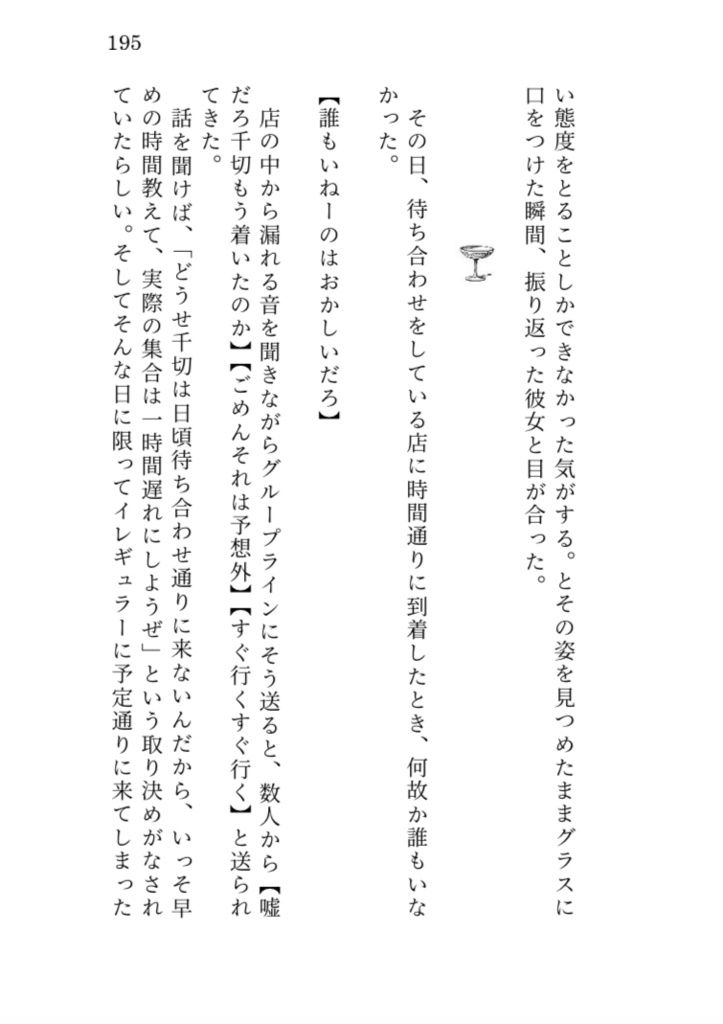 195
い態度をとることしかできなかった気がする。とその姿を見つめたままグラスに
口をつけた瞬間、振り返った彼女と目が合った。
その日、待ち合わせをしている店に時間通りに到着したとき、何故か誰もいな
かった。
【誰もいねーのはおかしいだろ】
店の中から漏れる音を聞きながらグループラインにそう送ると、数人から【嘘
だろ千切もう着いたのか】【ごめんそれは予想外】【すぐ行くすぐ行く】と送られ
てきた。
話を聞けば、「どうせ千切は日頃待ち合わせ通りに来ないんだから、いっそ早
めの時間教えて、実際の集合は一時間遅れにしようぜ」という取り決めがなされ
ていたらしい。そしてそんな日に限ってイレギュラーに予定通りに来てしまった